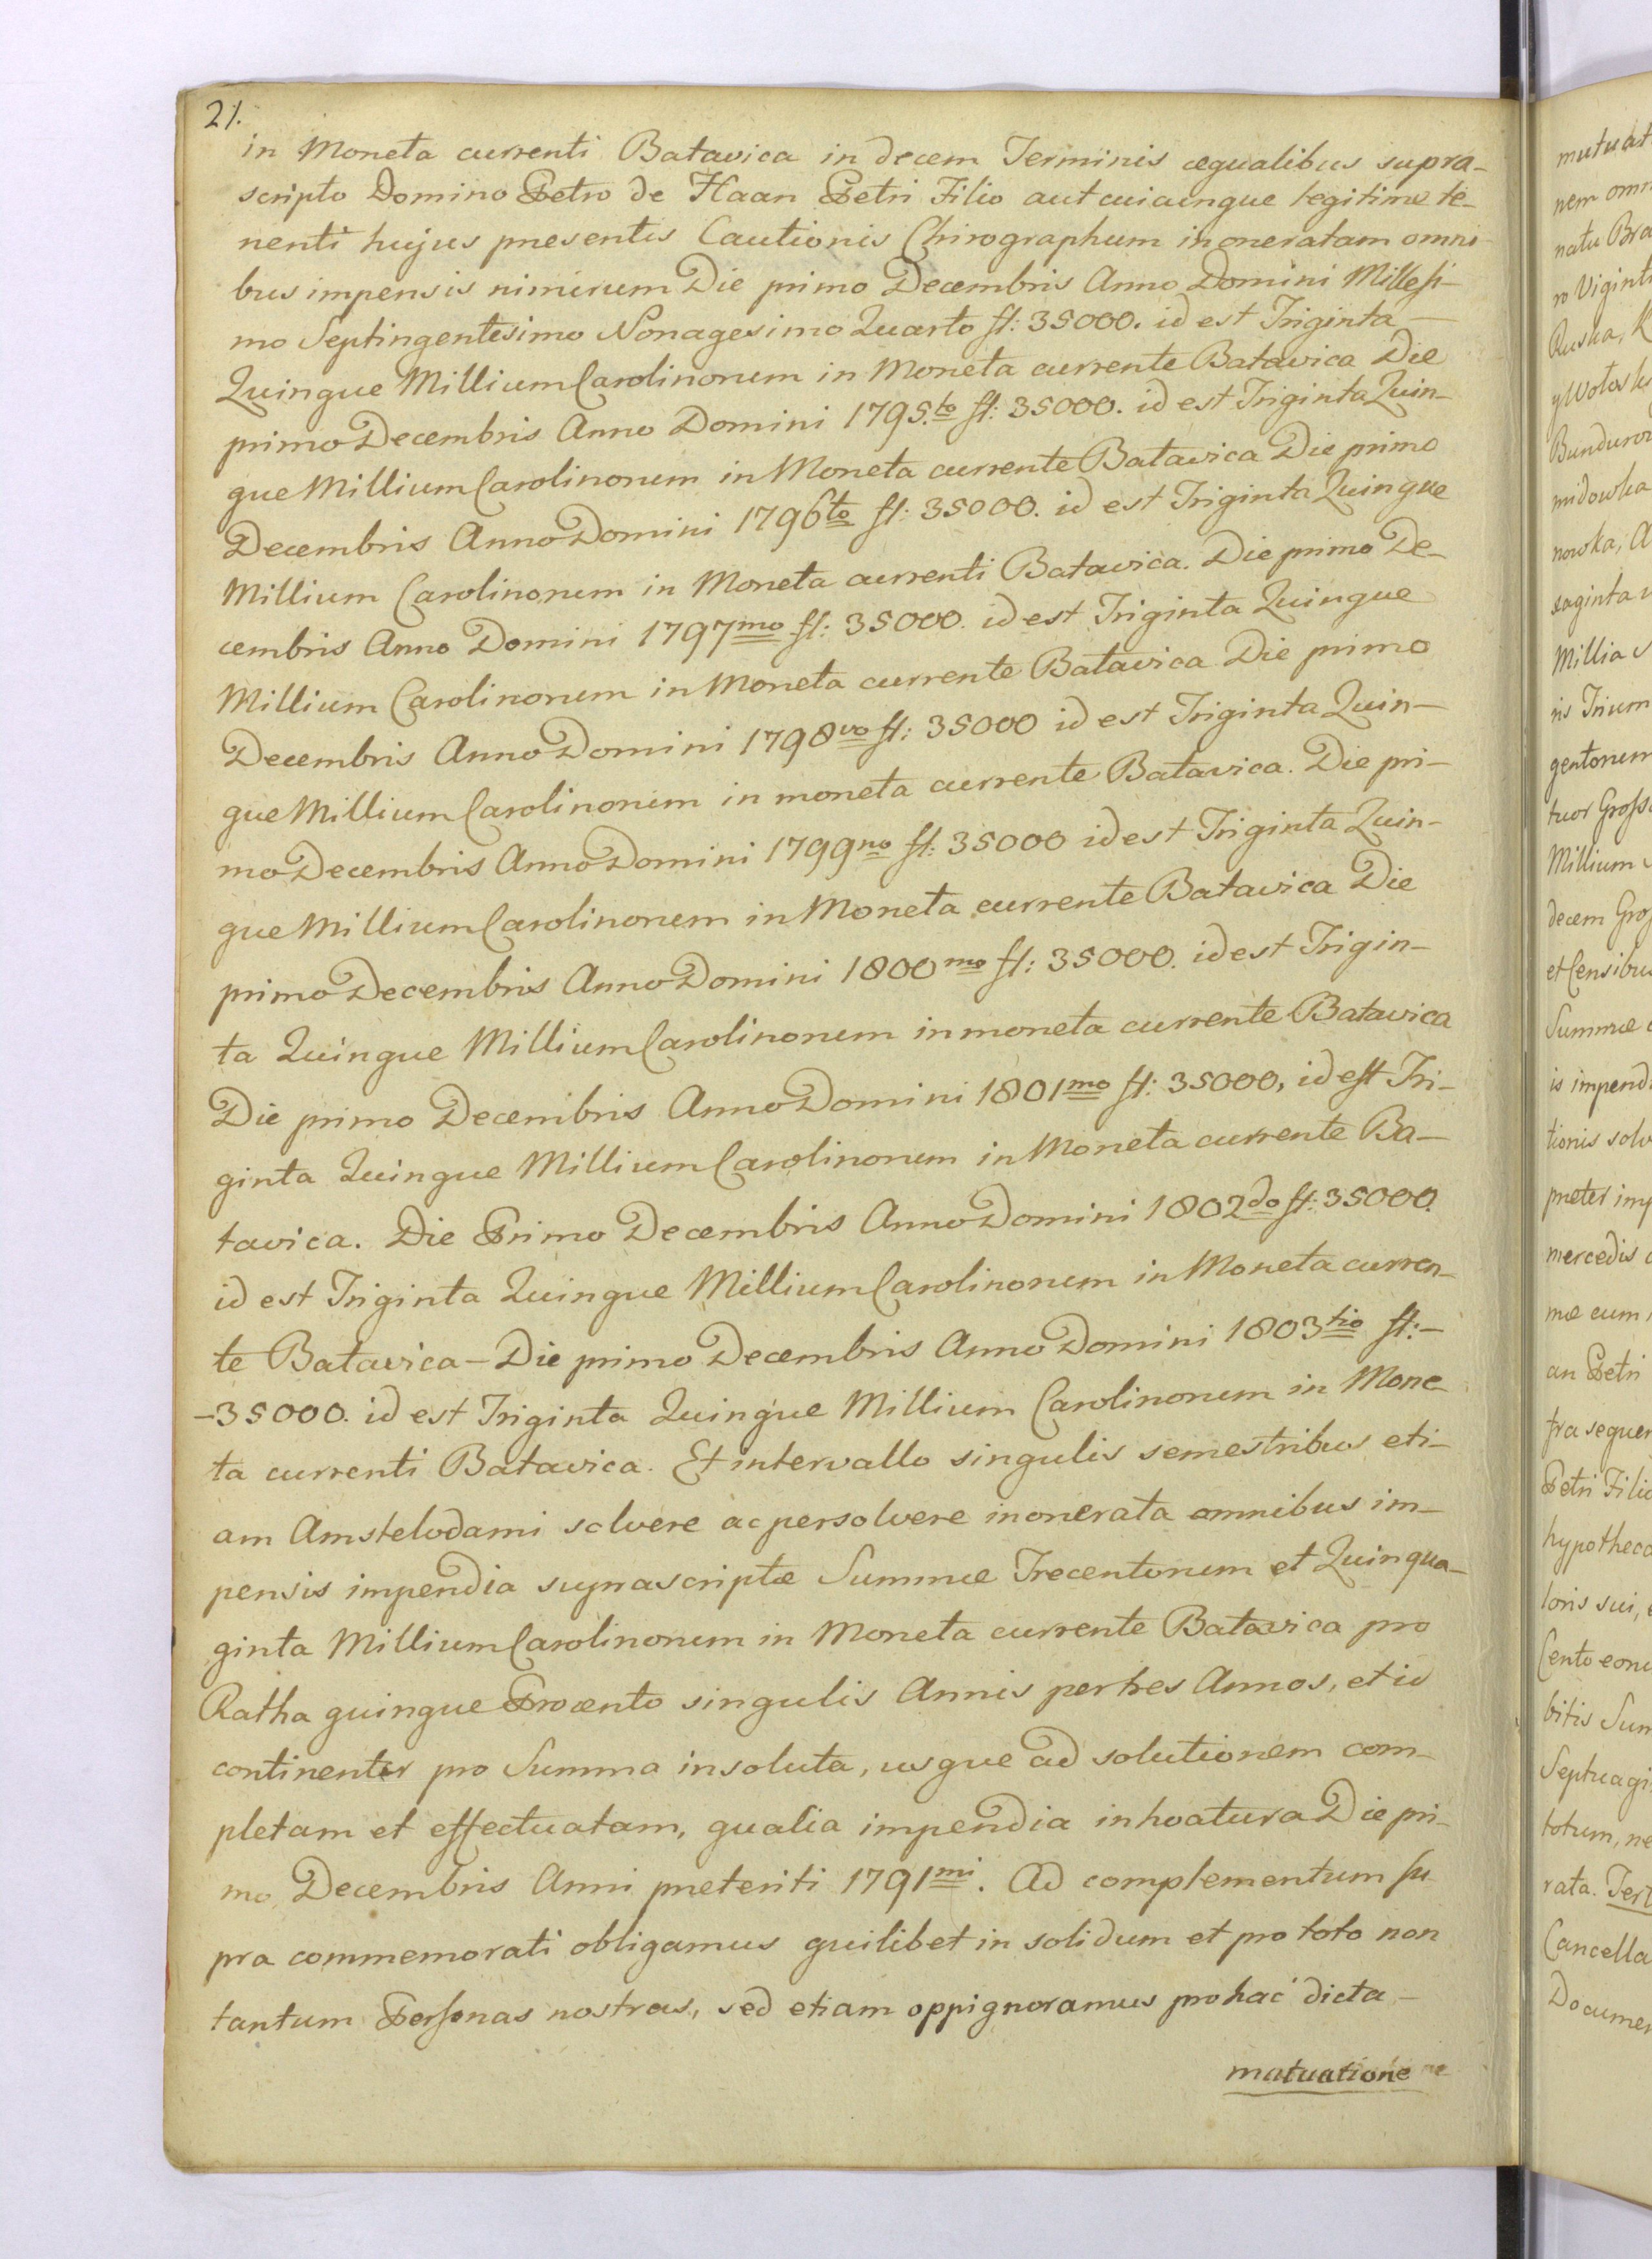 21.
in Moneta currenti Batavica in decem Terminis æqualibus supra-
scripto Domino Petro de Haan Petri Filio aut cuicunque legitime te-
nenti hujus presentis Cautionis Chirographum inoneratam omni
bus impensis nimirum Die primo Decembris Anno Domini Millesi-
mo Septingentesimo Nonagesimo Quarto fl: 35000. id est Triginta —
Quinque Millium Carolinorum in Moneta currente Batavica Die
primo Decembris Anno Domini 1795.to fl: 35000. id est Triginta Quin-
que Millium Carolinorum in Moneta currente Batavica Die primo
Decembris Anno Domini 1796to fl: 35000. id est Triginta Quinque
Millium Carolinorum in Moneta currenti Batavica. Die primo De-
cembris Anno Domini 1797mo fl: 35000. id est Triginta Quinque
Millium Carolinorum in Moneta currente Batavica Die primo
Decembris Anno Domini 1798vo fl: 35000 id est Triginta Quin-
que Millium Carolinorum in moneta currente Batavica. Die pri-
mo Decembris Anno Domini 1799no fl: 35000 id est Triginta Quin-
que Millium Carolinorum in Moneta currente Batavica Die
primo Decembris Anno Domini 1800mo fl: 35000. id est Trigin-
ta Quinque Millium Carolinorum in moneta currente Batavica
Die primo Decembris Anno Domini 1801mo fl: 35000, id est Tri-
ginta Quinque Millium Carolinorum in Moneta currente Ba-
tavica. Die Primo Decembris Anno Domini 1802do fl: 35000.
id est Triginta Quinque Millium Carolinorum in Moneta curren-
te Batavica - Die primo Decembris Anno Domini 1803tio fl: -
-35000. id est Triginta Quinque Millium Carolinorum in Mone
ta currenti Batavica. Et intervallo singulis semestribus eti-
am Amstelodami solvere ac persolvere inonerata omnibus im-
pensis impendia suprascriptæ Summæ Trecentorum et Quinqua-
ginta Millium Carolinorum in Moneta currente Batavica pro
Ratha quinque Procento singulis Annis per tres Annos, et id
continenter pro Summa insoluta, usque ad solutionem com-
pletam et effectuatam, qualia impendia inhoatura Die pri-
mo Decembris Anni preteriti 1791mi. Ad complementum su
pra commemorati obligamus quilibet in solidum et pro toto non
tantum Personas nostras, sed etiam oppignoramus pro hac dicta -
mutuatione
mutuat
nem omn
natu Bra
ro Viginti
Ruska, K
y Wolosk
Bundurow
midowka
nowka, A
xaginta
Millia
ris Trium
gentorum
tuor Gross
Millium
decem Gros
et Censibus
Summæ
is impend
tionis solv
preter imp
mercedis
mæ cum
an Petri
fra sequen
Petri Filio
hypotheca
loris sui,
Cento
bitis Sum
Septuagi
totum, ne
rata. Ter
Cancella
Documen